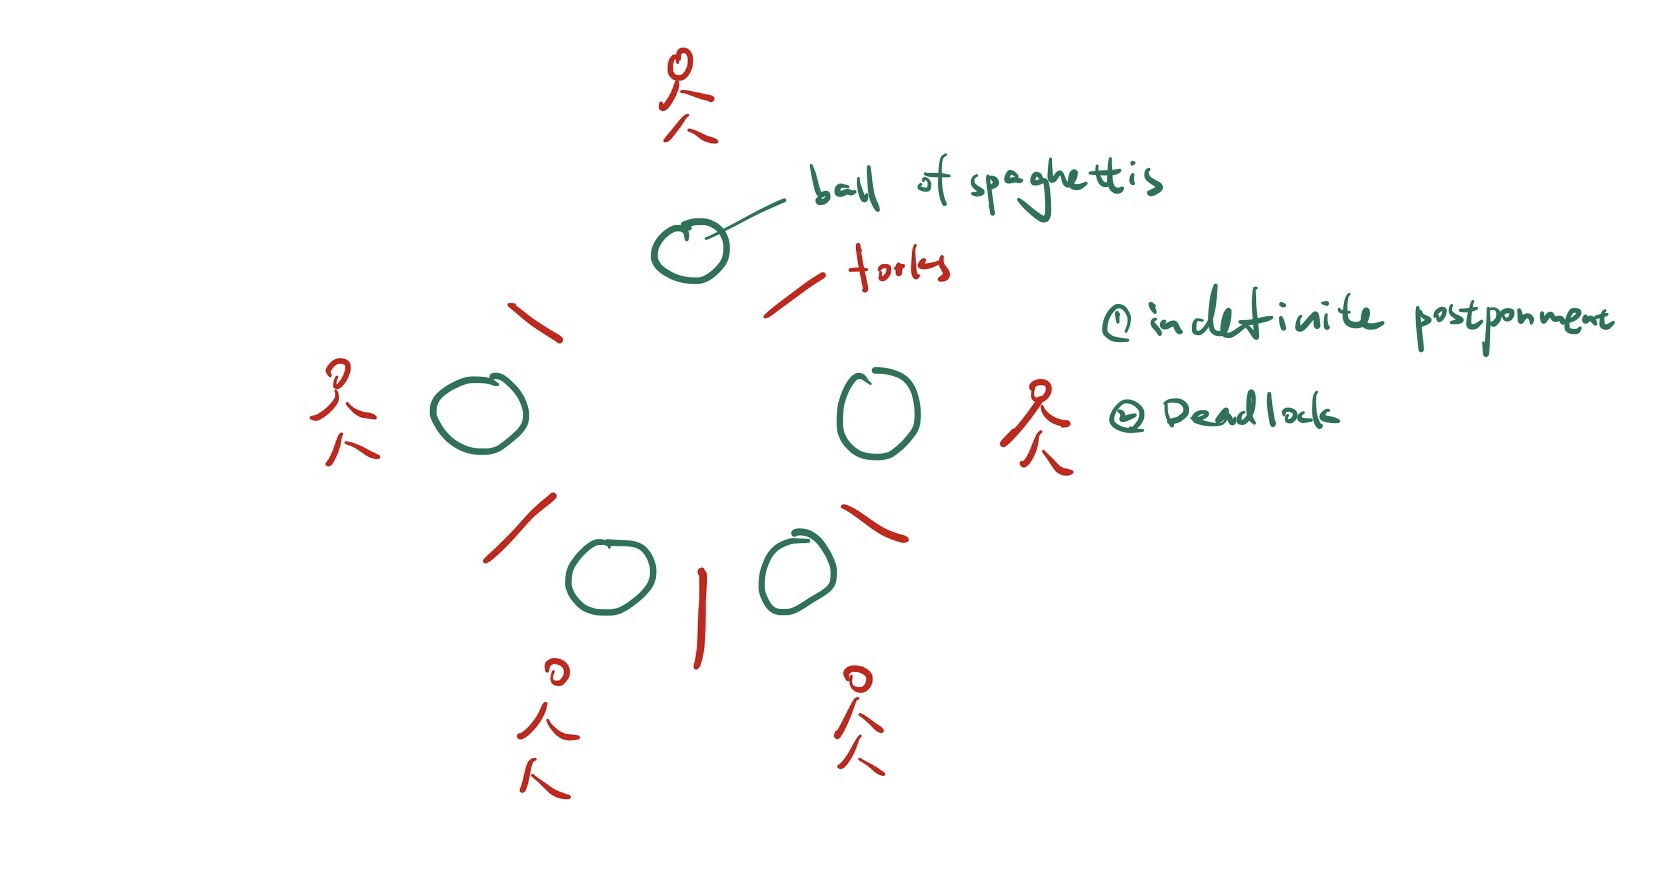 ball of spaghettis
forks
① indefinite postponment
② Deadlock